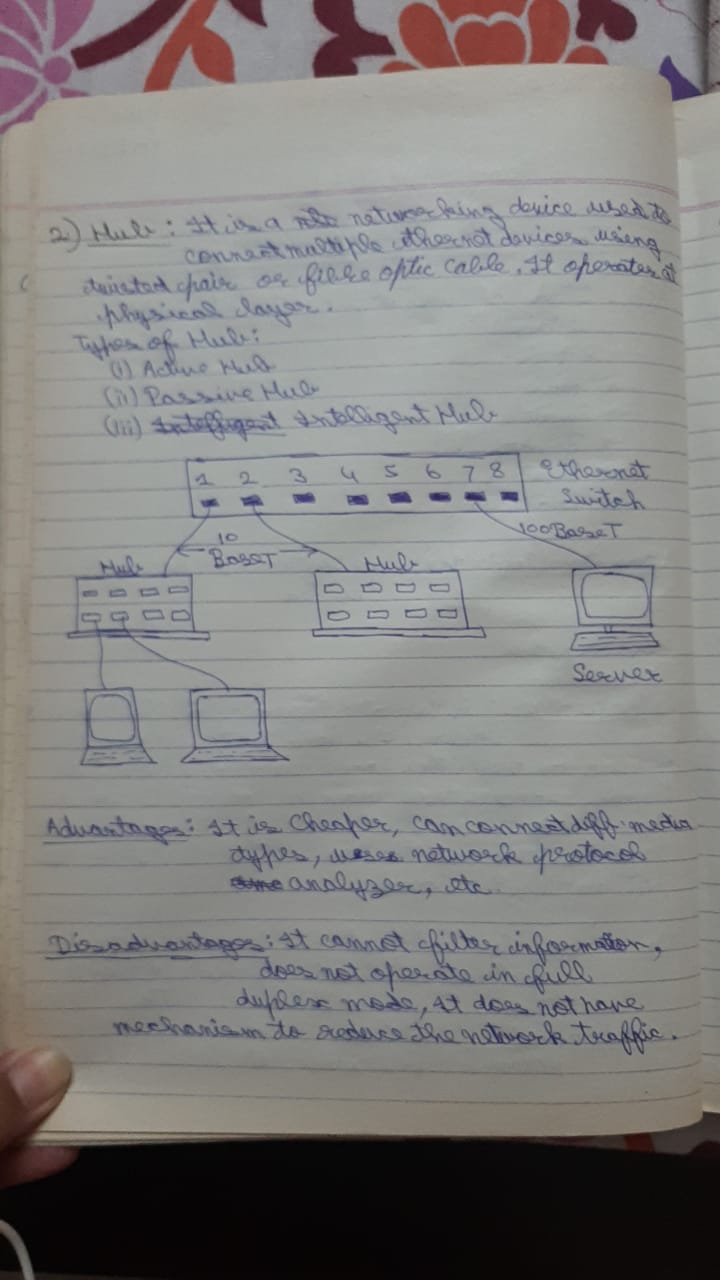 2) Hub : It is a networking device used to
connect multiple ethernet devices using
twisted pair or fibre optic cable. It operates at
physical layer.
Types of Hub :
(i) Active Hub
(ii) Passive Hub
(iii) Intelligent Intelligent Hub
1 2 3 4 5 6 7 8 Ethernet
Switch
100 Base T
10
Base T
Hub Hub
Server
Advantages : It is Cheaper, can connect diff. media
types, uses network protocol
analyzer, etc.
Disadvantages : It cannot filter information,
does not operate in full
duplex mode, it does not have
mechanism to reduce the network traffic.